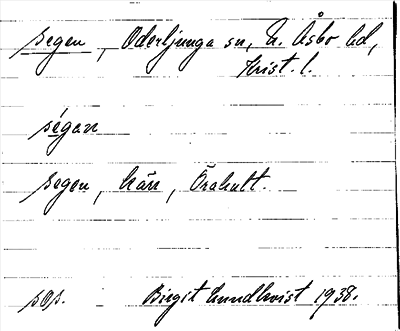 segen, Oderljunga sn, N. Åsbo hd,
Krist. l.
ségan
segen, kärr, Örahult.
sös. Birgit Lundkvist 1938.